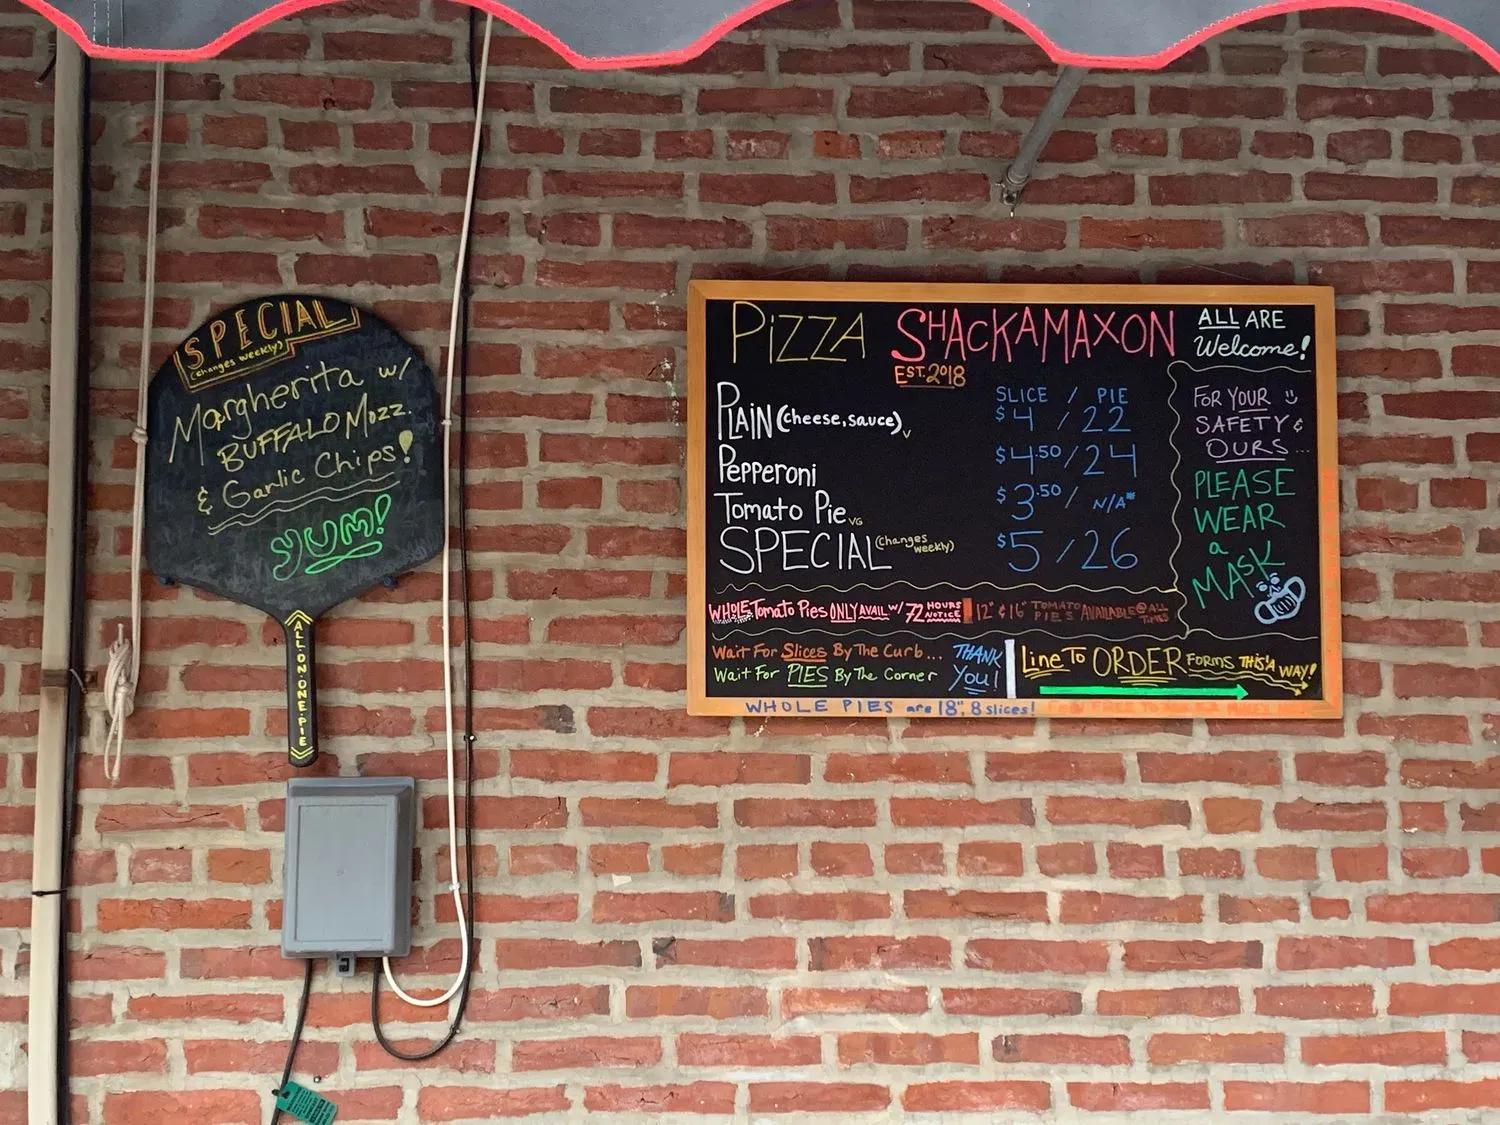 SPECIAL
(changes weekly)
Margherita w/
BUFFALO Mozz.
& Garlic Chips!
YUM!
ALL·ON·ONE·PIE
PiZZA SHACKAMAXON
EST. 2018
ALL ARE
Welcome!
SLICE / PIE
PLAiN (cheese, sauce) V $4 / 22
Pepperoni $4.50 / 24
Tomato Pie VG $3.50 / N/A*
SPECIAL (changes weekly) $5 / 26
FOR YOUR
SAFETY &
OURS...
PLEASE
WEAR
a
MASK
WHOLE Tomato Pies ONLY AVAIL w/ 72 HOURS NOTICE
12" & 16" TOMATO PIES AVAILABLE @ ALL TIMES
WAIT FOR SLICES BY THE CURB...
WAIT FOR PIES BY THE CORNER
THANK
YOU!
LINE TO ORDER FORMS THIS'A WAY!
WHOLE PIES are 18", 8 slices!